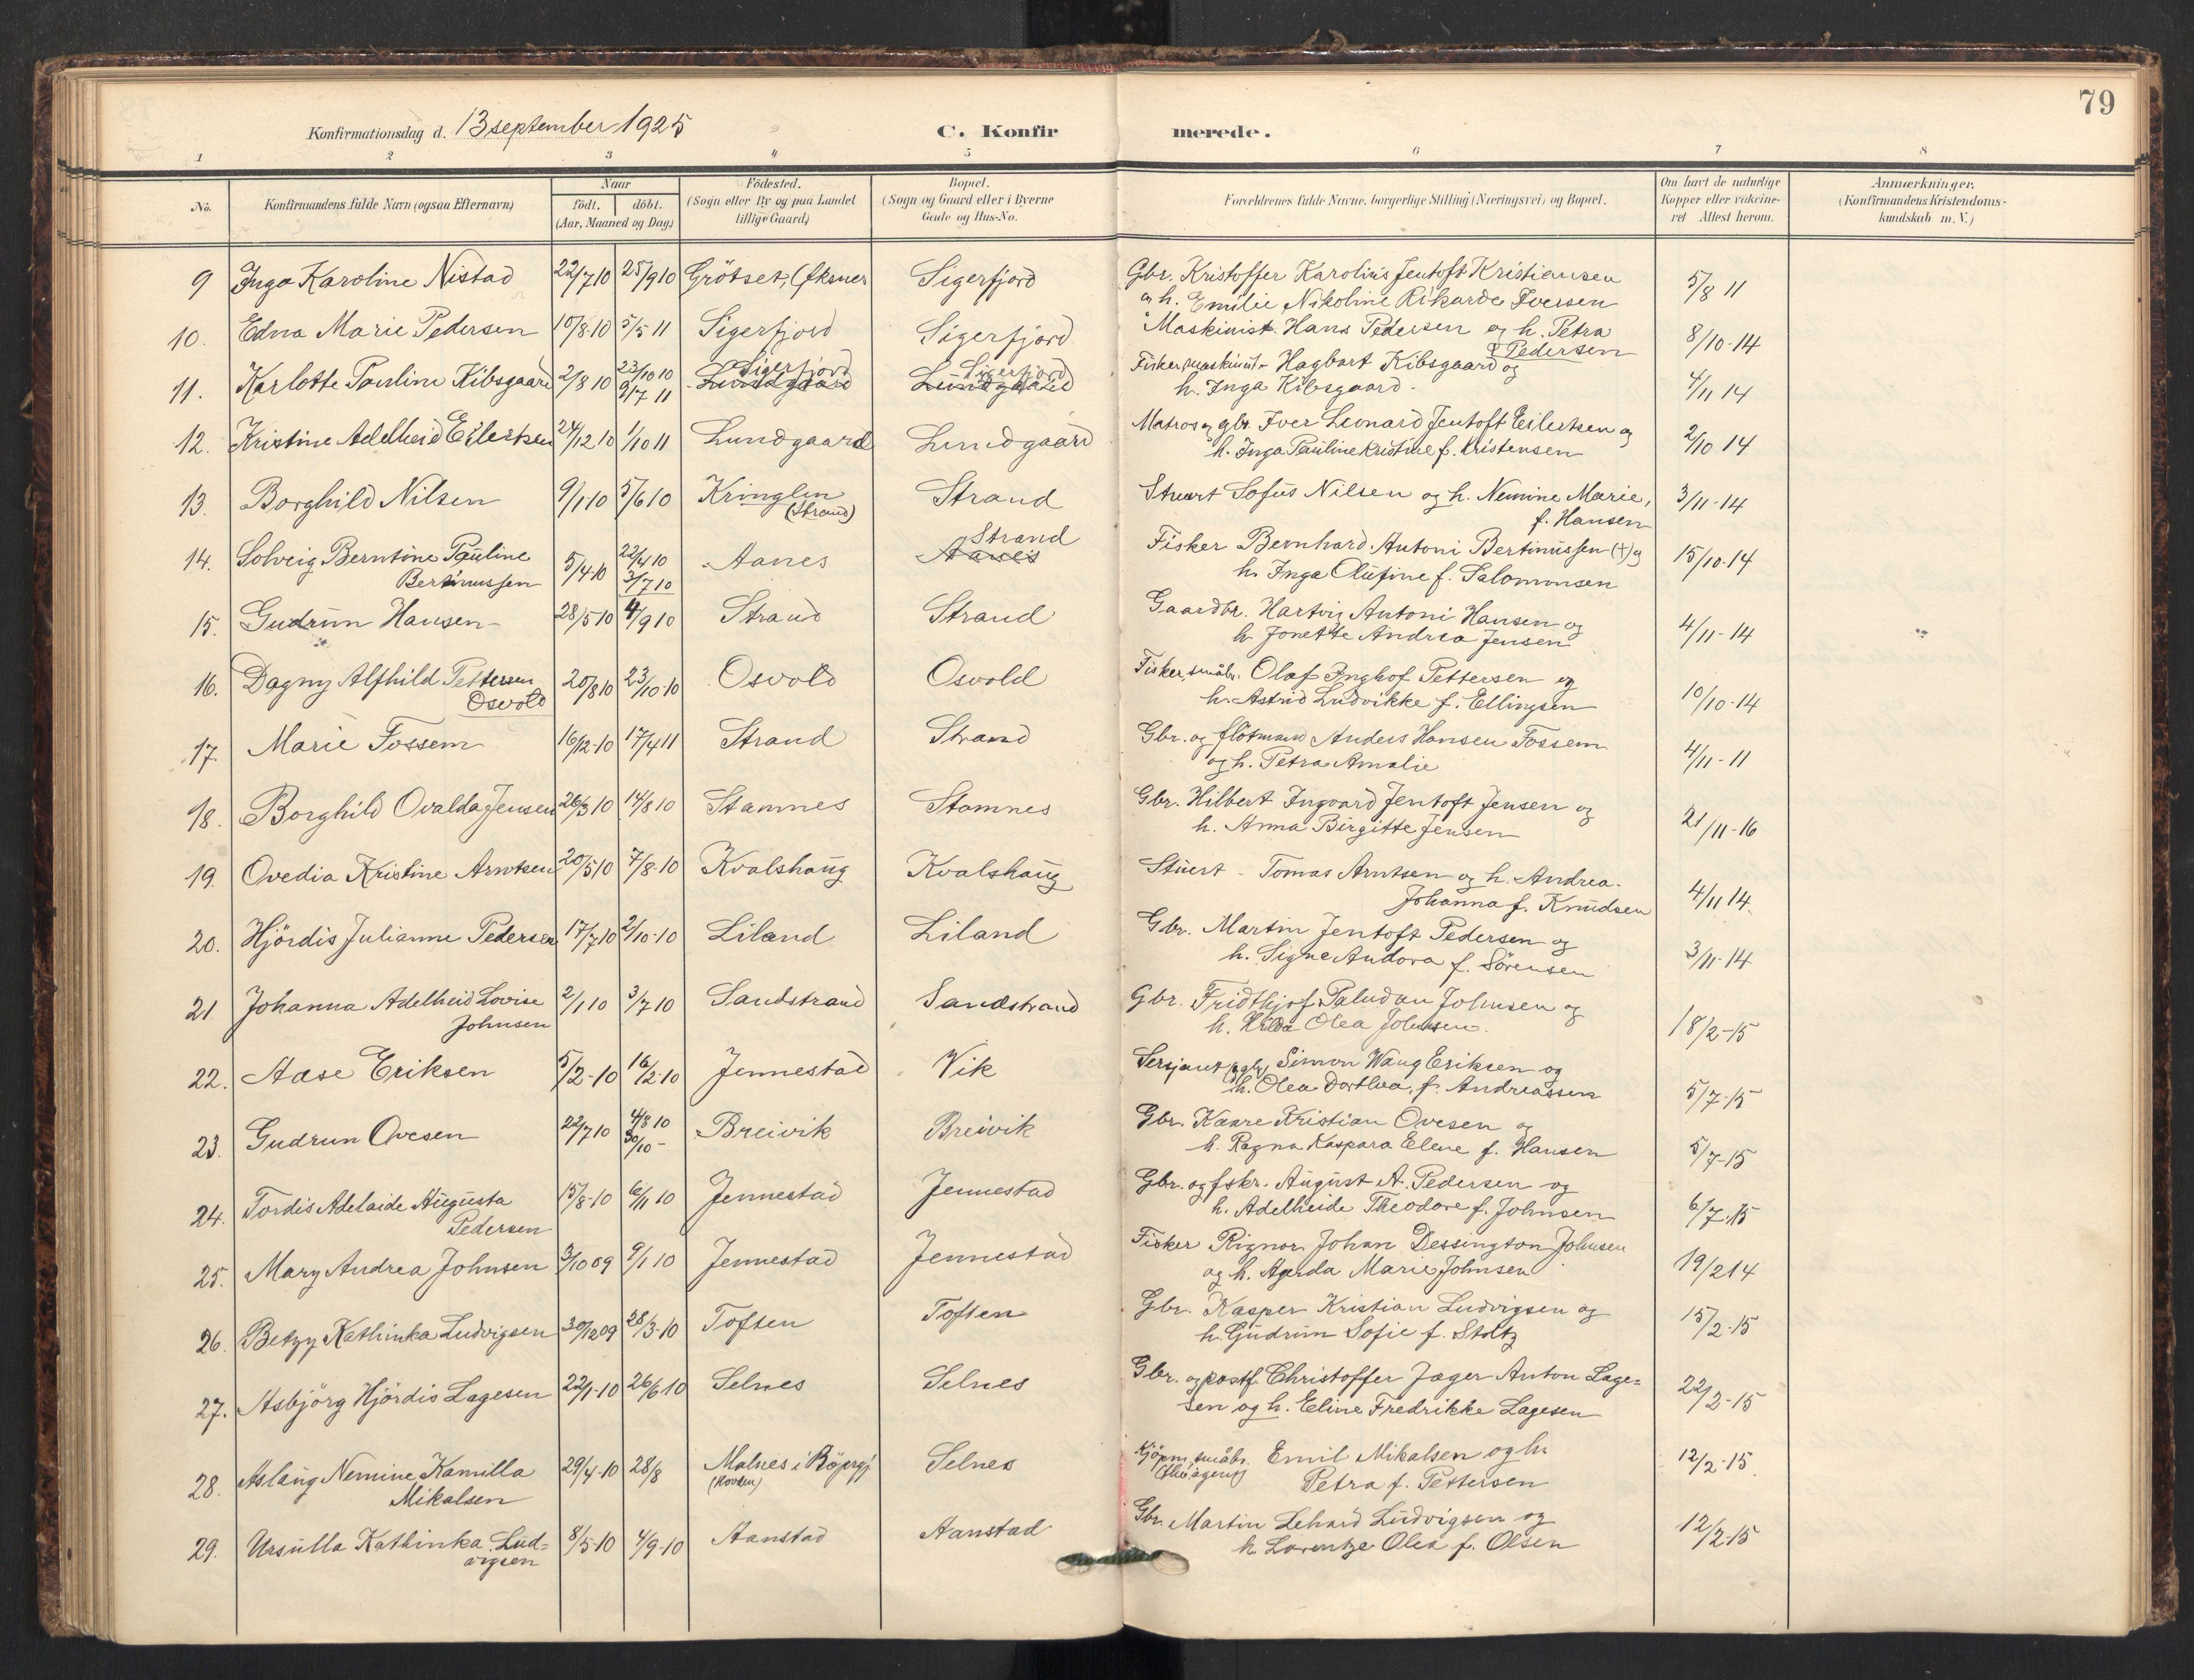 79
Konfirmationsdag d. 13 september 1925 C. Konfirmerede.
1 2 3 4 5 6 7 8
No. Konfirmandens fulde Navn (ogsaa Efternavn) Naar födt. döbt. (Aar, Maaned og Dag) Födested. (Sogn eller By og paa Landet tillige Gaard) Bopæl. (Sogn og Gaard eller i Byerne Gade og Hus-No. Forældrenes fulde Navne, borgerlige Stilling (Næringsvei) og Bopæl. Om havt de naturlige Kopper eller vakcineret Attest herom. Anmærkninger. (Konfirmandens Kristendomskundskab m. V.)
9 Inga Karoline Nistad 22/7 10 25/9 10 Grötset, Öksnes Sigerfjord Gbr. Kristoffer Karolius Jentoft Kristiansen 5/8 11
og h. Emilie Nikoline Rikarde Iversen
10. Edna Marie Pedersen 10/8-10 5/5 11 Sigerfjord Sigerfjord Maskinist Hans Pedersen og h. Petra 8/10-14
Pedersen
11. Karlotte Pauline Kibsgaard 2/8 10 23/10 10 9/7 11 Lundgaard Sigerfjord Lundgaard Sigerfjord Fisker, maskinist Hagbart Kibsgaard og 4/11 14
h. Inga Kibsgaard
12. Kristine Adelheid Eilertsen 24/12 10 1/10 11 Lundgaard Lundgaard Matros og gbr. Iver Leonard Jentoft Eilertsen og 2/10 14
h. Inga Pauline Kristine f. Kristensen
13. Borghild Nilsen 9/1 10 5/6 10 Kringlen (Strand) Strand Stuert Sofus Nilsen og h. Nemine Marie, 3/11-14
f. Hansen
14. Solveig Berntine Pauline 5/4-10 22/4 10 3/7 10 Aanes Aanes Strand Fisker Bernhard Antoni Bertinussen (+) og 15/10-14
Bertinussen h. Inga Olufine f. Salomonsen
15. Gudrun Hansen 28/5 10 4/9 10 Strand Strand Gaardbr. Hartvig Antoni Hansen og 4/11-14
h. Jonette Andrea Jensen
16. Dagny Alfhild Pettersen 20/8 10 23/10-10 Osvold Osvold Fisker, småbr. Olaf Inghof Pettersen og 10/10-14
Osvold h. Astrid Ludvikke f. Ellingsen
17. Marie Fossem 16/12-10 17/4 11 Strand Strand Gbr. og flötmand Anders Hansen Fossem 4/11-11
og h. Petra Amalie
18. Borghild Ovalda Jensen 26/3 10 14/8 10 Stamnes Stamnes Gbr. Hilbert Ingvard Jentoft Jensen og 21/11-16
h. Anna Birgitte Jensen
19. Ovedia Kristine Arntsen 20/5 10 7/8-10 Kvalshaug Kvalshaug Stuert - Tomas Arntsen og h. Andrea 4/11 14
Johanna f. Knudsen
20. Hjördis Julianne Pedersen 17/7 10 2/10-10 Liland Liland Gbr. Martin Jentoft Pedersen og 3/11-14
h. Signe Andora f. Sörensen
21. Johanna Adelheid Lovise 2/1 10 3/7 10 Sandstrand Sandstrand Gbr. Fridthjof Paludan Johnsen og 18/2-15
Johnsen h. Hilda Olea Johnsen.
22. Aase Eriksen 5/2-10 16/2-10 Jennestad Vik Sersjant Simon Waug Eriksen og 5/7-15
h. Olea Dorthea f. Andreassen
23. Gudrun Ovesen 22/7 10 4/8 10 30/10- Breivik Breivik Gbr. Kaare Kristian Ovesen og 5/7-15
h. Ragna Kaspara Elene f. Hansen
24. Tordis Adelaide Augusta 15/8-10 6/11 10 Jennestad Jennestad Gbr. og fskr. August A. Pedersen og 6/7.15
Pedersen h. Adelheide Theodore f. Johnsen
25. Mary Andrea Johnsen 3/10 09 9/1 10 Jennestad Jennestad Fisker Rignor Johan Dessington Johnsen 19/2 14
og h. Agerda Marie Johnsen
26. Betzy Kathinka Ludvigsen 30/12 09 28/3-10 Toften Toften Gbr. Kasper Kristian Ludvigsen og 15/2-15
h. Gudrun Sofie f. Stoltz
27. Asbjörg Hjördis Lagesen 22/1-10 26/6 10 Selnes Selnes Gbr. og postf. Christoffer Jæger Anton Lage= 22/2-15
sen og h. Eline Fredrikke Lagesen
28. Aslaug Nemine Kamilla 29/4-10 28/8 Malnes i Böprgj (Hovden) Selnes Kjöpm., småbr. Emil Mikalsen og h. 12/2-15
Mikalsen Petra f. Pettersen
29. Ursulla Kathinka Lud= 8/5-10 4/9-10 Aanstad Aanstad Gbr. Martin Lehard Ludvigsen og 12/2-15
vigsen h. Lorentze Olea f. Olsen